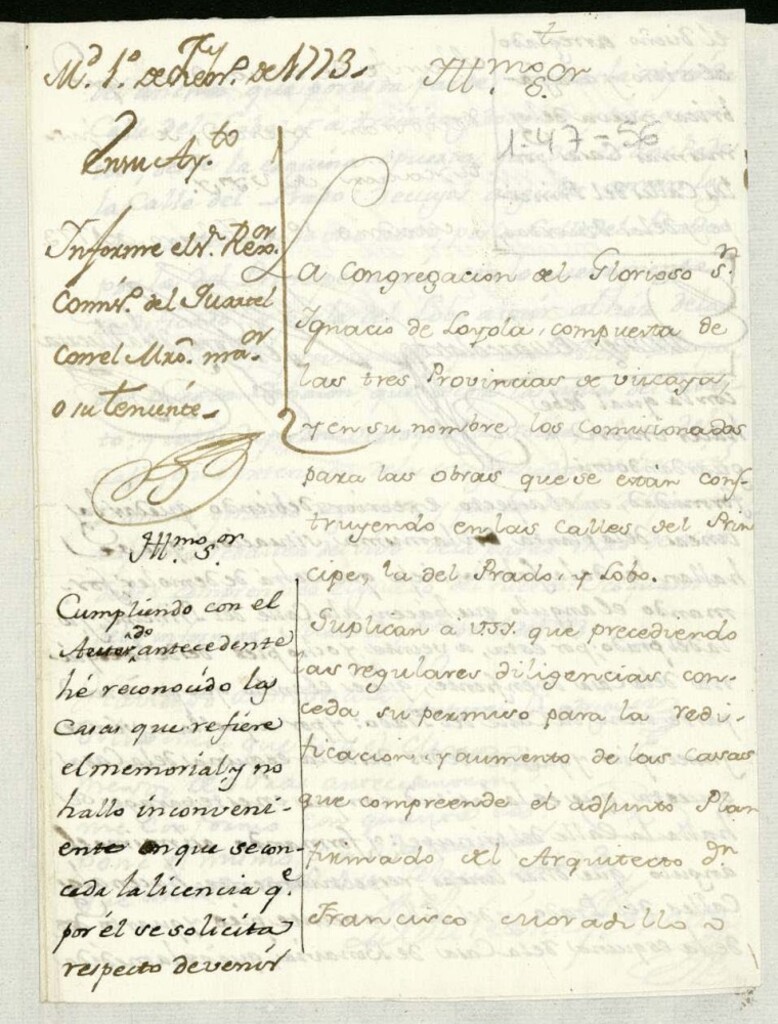 M.d 1.o de Febr.o de 1773.
Ill.mo S.or
1-47-56
En su Ay.to
Informe el S.r Rex.or
Comis.o del Quartel
con el Mro. ma.or
o su teniente.
La Congregacion del Glorioso S.n
Ignacio de Loyola, compuesta de
las tres Provincias de Viscaya,
y en su nombre los Comisionados
para las obras que se están cons-
truyendo en las calles del Prin
cipe, la del Prado, y Lobo.
Suplican á VSI. que precediendo
las regulares diligencias con-
ceda su permiso para la redi-
ficacion, y aumento de las casas
que compreende el adjunto Plan
firmado del Arquitecto d.n
Francisco Moradillo
Ill.mo S.or
Cumpliendo con el
Acuerdo antecedente
hé reconocido las
Casas que refiere
el memorial, y no
hallo inconveni-
ente en que se con-
ceda la licencia q.e
por él se solicita
respecto de venir